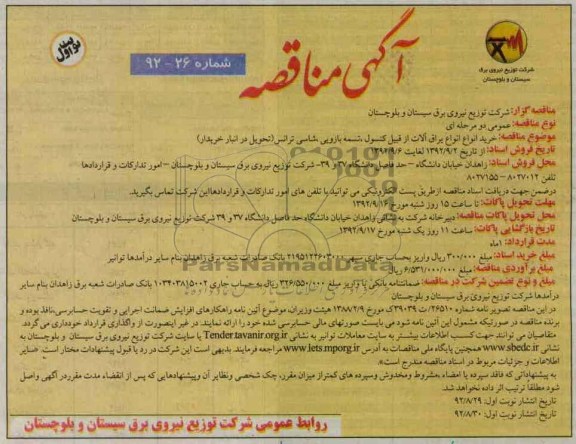 نوبت اول
آگهی مناقصه
شماره ۲۶ - ۹۲
شرکت توزیع نیروی برق
سیستان و بلوچستان
مناقصه گزار: شرکت توزیع نیروی برق سیستان و بلوچستان
نوع مناقصه: عمومی دو مرحله ای
موضوع مناقصه: خرید انواع انواع یراق آلات از قبیل کنسول، تسمه بازویی، شاسی ترانس (تحویل در انبار خریدار)
تاریخ فروش اسناد: از تاریخ ۱۳۹۲/۹/۲ لغایت ۱۳۹۲/۹/۶
محل فروش اسناد: زاهدان خیابان دانشگاه - حد فاصل دانشگاه ۳۷ و ۳۹- شرکت توزیع نیروی برق سیستان و بلوچستان - امور تدارکات و قراردادها
تلفن ۸۰۲۷۰۱۲ - ۸۰۲۷۱۵۵
درضمن جهت دریافت اسناد مناقصه ازطریق پست الکترونیکی می توانید با تلفن های امور تدارکات و قراردادها این شرکت تماس بگیرید.
مهلت تحویل پاکات: تا ساعت ۱۵ روز شنبه مورخ ۱۳۹۲/۹/۱۶
محل تحویل پاکات مناقصه: دبیرخانه شرکت به نشانی زاهدان خیابان دانشگاه حد فاصل دانشگاه ۳۷ و ۳۹ شرکت توزیع نیروی برق سیستان و بلوچستان
تاریخ بازگشایی پاکات: ساعت ۱۱ روز یک شنبه مورخ ۱۳۹۲/۹/۱۷
مدت قرارداد: ۱ماه
مبلغ خرید اسناد: مبلغ ۳۰۰/۰۰۰ ریال واریز بحساب جاری سپهر بانک صادرات شعبه برق زاهدان بنام سایر درآمدها توانیر
مبلغ برآوردی مناقصه: مبلغ ۶/۵۳۱/۰۰۰/۰۰۰ ریال
مبلغ و نوع تضمین شرکت در مناقصه: ضمانتنامه بانکی یا واریز مبلغ ۳۲۶/۵۵۰/۰۰۰ ریال به حساب جاری ۱۰۳۴۰۳۸۱۵۰۰۲ بانک صادرات شعبه برق زاهدان بنام سایر
درآمدها شرکت توزیع نیروی برق سیستان و بلوچستان
در این مناقصه تصویر نامه شماره ۲۶۵۱۰/ت ۳۹۰۳۹ک مورخ ۱۳۸۸/۲/۹ هیئت وزیران، موضوع آئین نامه راهکارهای افزایش ضمانت اجرایی و تقویت حسابرسی، نافذ بوده و
برنده مناقصه در صورتیکه مشمول این آئین نامه شود می بایست صورتهای مالی حسابرسی شده خود را ارائه نمایند. در غیر اینصورت از واگذاری قرارداد خودداری می گردد.
متقاضیان می توانند جهت کسب اطلاعات بیشتر به سایت معاملات توانیر به نشانی Tender.tavanir.org.ir یا سایت شرکت توزیع نیروی برق سیستان و بلوچستان به
نشانی www.sbedc.ir همچنین پایگاه ملی مناقصات به آدرس www.iets.mporg.ir مراجعه فرمایند. بدیهی است این شرکت در رد یا قبول پیشنهادات مختار است. ضمنا سایر
اطلاعات و جزئیات مربوط در اسناد مناقصه مندرج است.
به پیشنهاداتی که فاقد سپرده یا امضاء، مشروط و مخدوش و سپرده های کمتر از میزان مقرر، چک شخصی و نظایر آن و پیشنهادهایی که پس از انقضاء مدت مقرر در آگهی واصل
شود مطلقا ترتیب اثر داده نخواهد شد.
تاریخ انتشار نوبت اول: ۹۲/۸/۲۹
تاریخ انتشار نوبت اول: ۹۲/۸/۳۰
روابط عمومی شرکت توزیع نیروی برق سیستان و بلوچستان
ParsNamadData